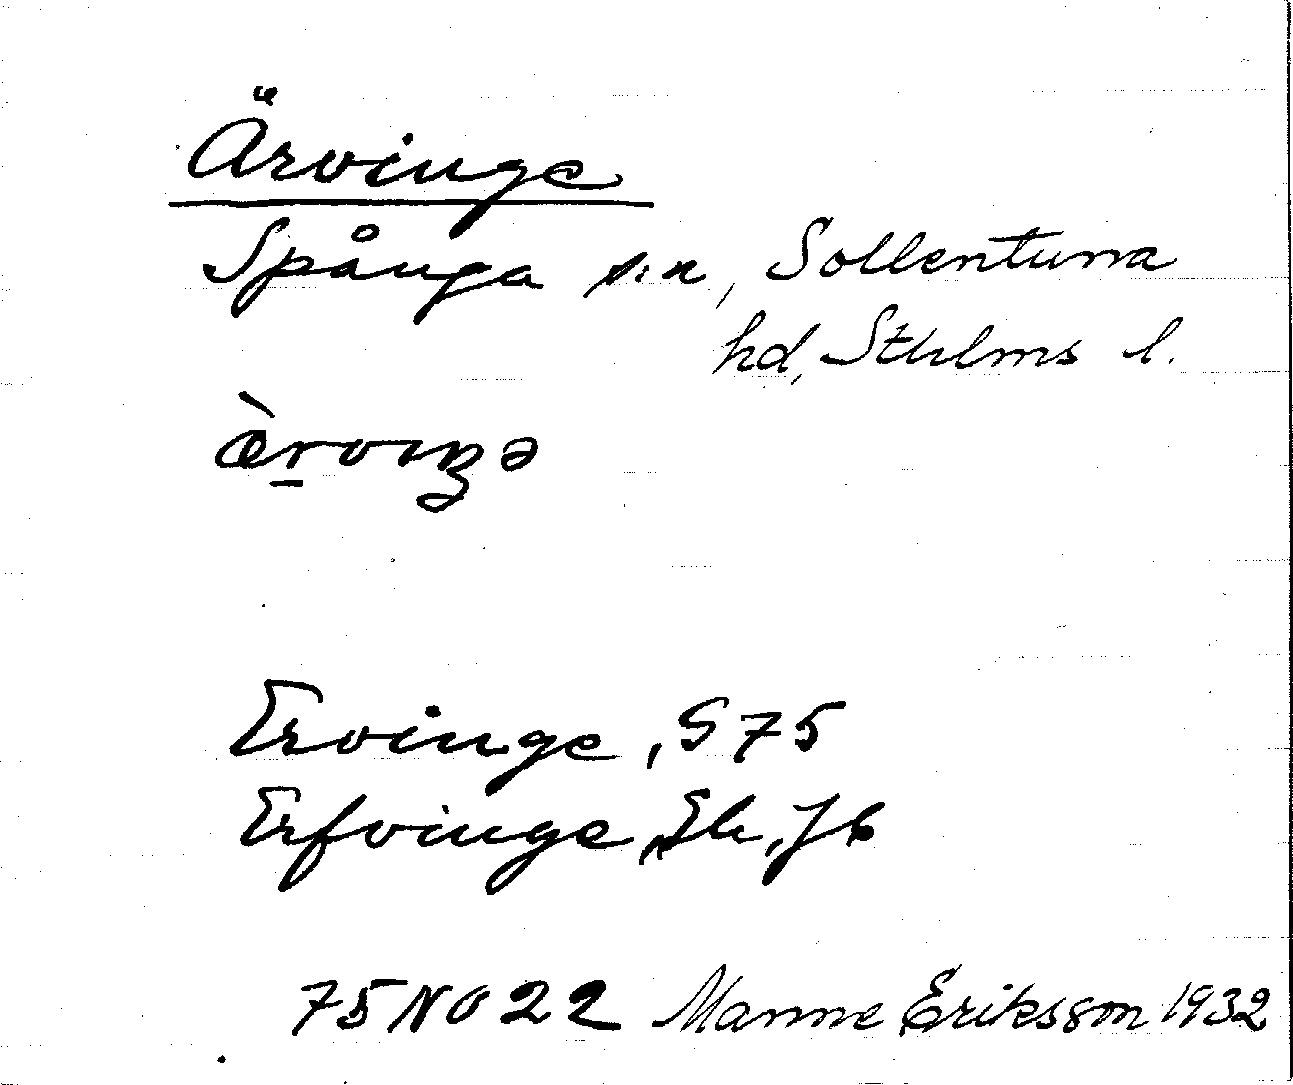 Ärvinge
Spånga sn, Sollentuna
hd, Sthlms l.
Ervinge, G 75
Erfvinge, Ek, Jb
75 NO 22 Manne Eriksson 1932